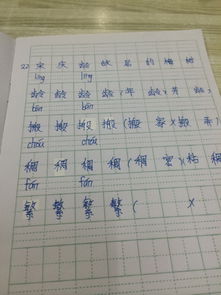 22 宋庆龄故居的樟树
líng líng
龄 龄 龄 龄(年龄)(
bān bān
搬 搬 搬 搬(搬家)(搬
chóu chóu
稠 稠 稠 稠(稠密)(粘稠
fán fán
繁 繁 繁 繁(